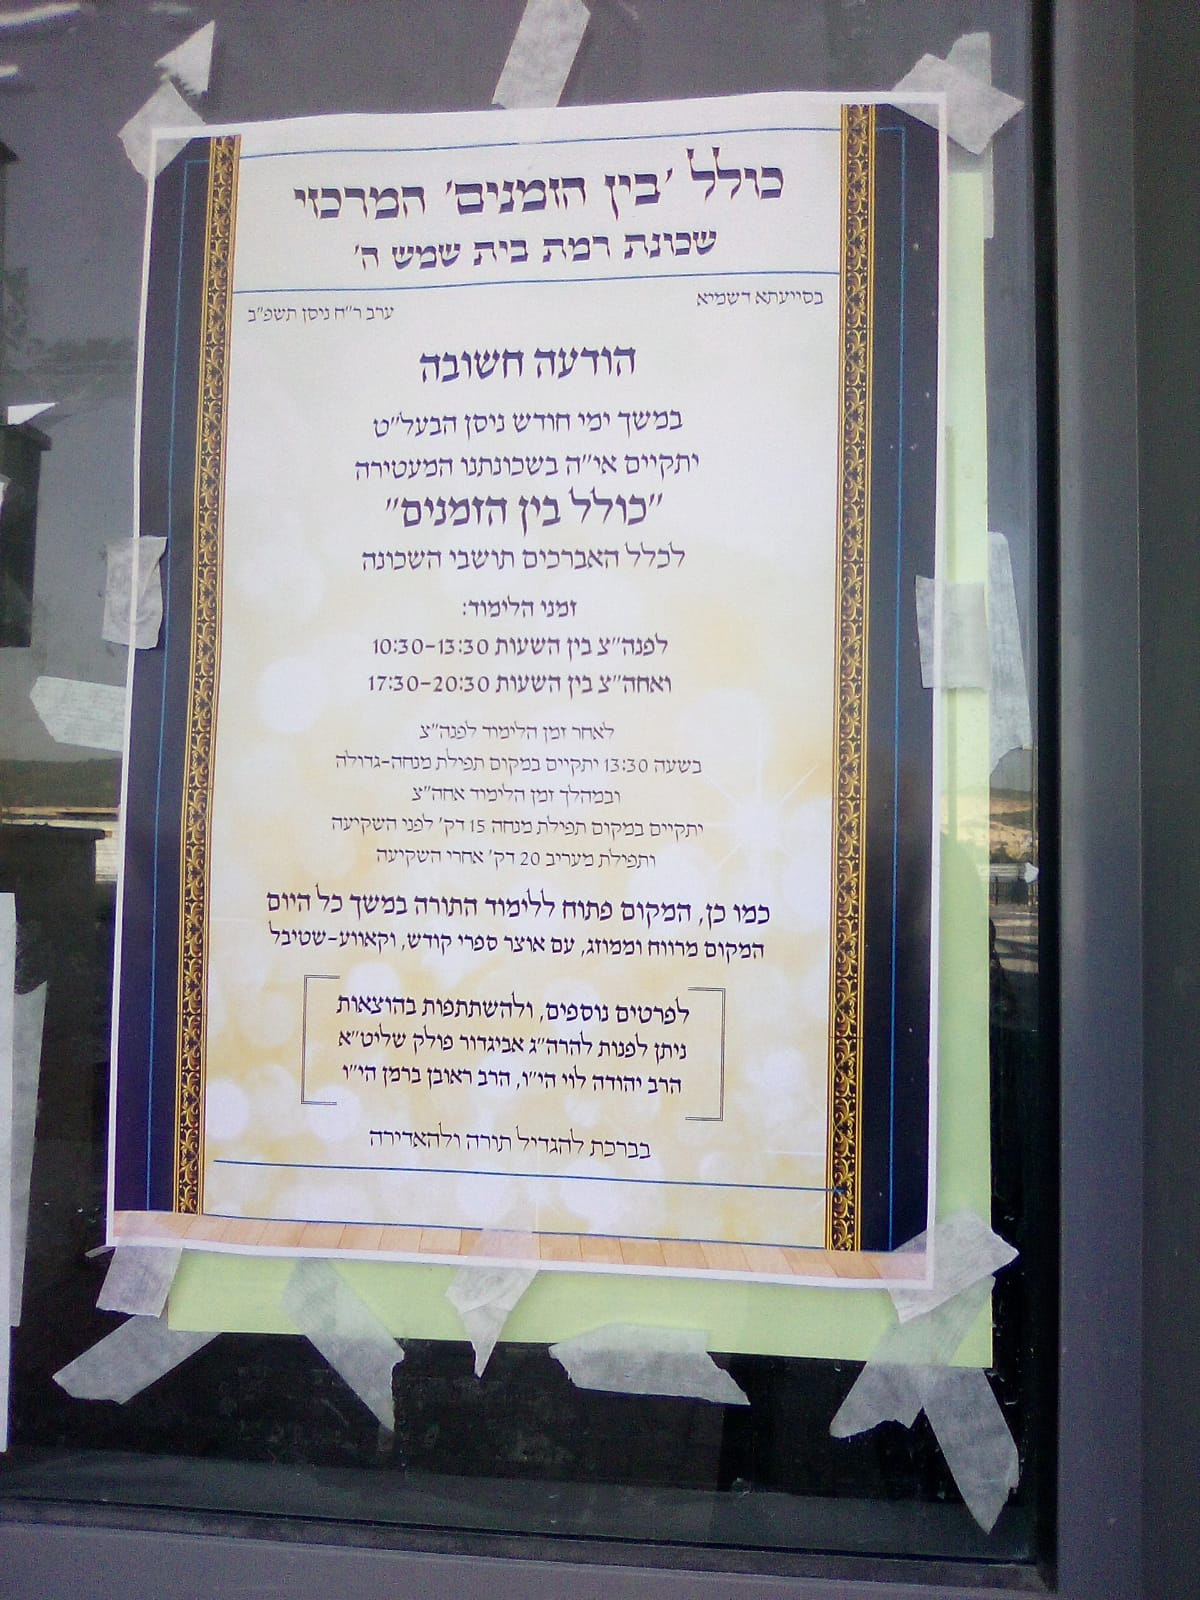 כולל 'בין הזמנים' המרכזי
שכונת רמת בית שמש ה'
בסייעתא דשמיא
ערב ר"ח ניסן תשפ"ב
הודעה חשובה
במשך ימי חודש ניסן הבעל"ט
יתקיים אי"ה בשכונתנו המעטירה
"כולל בין הזמנים"
לכלל האברכים תושבי השכונה
זמני הלימוד:
לפנה"צ בין השעות 10:30-13:30
ואחה"צ בין השעות 17:30-20:30
לאחר זמן הלימוד לפנה"צ
בשעה 13:30 יתקיים במקום תפילת מנחה-גדולה
ובמהלך זמן הלימוד אחה"צ
יתקיים במקום תפילת מנחה 15 דק' לפני השקיעה
ותפילת מעריב 20 דק' אחרי השקיעה
כמו כן, המקום פתוח ללימוד התורה במשך כל היום
המקום מרווח וממוזג, עם אוצר ספרי קודש, וקאווע-שטיבל
לפרטים נוספים, ולהשתתפות בהוצאות
ניתן לפנות להרה"ג אביגדור פולק שליט"א
הרב יהודה לוי הי"ו, הרב ראובן ברמן הי"ו
בברכת להגדיל תורה ולהאדירה